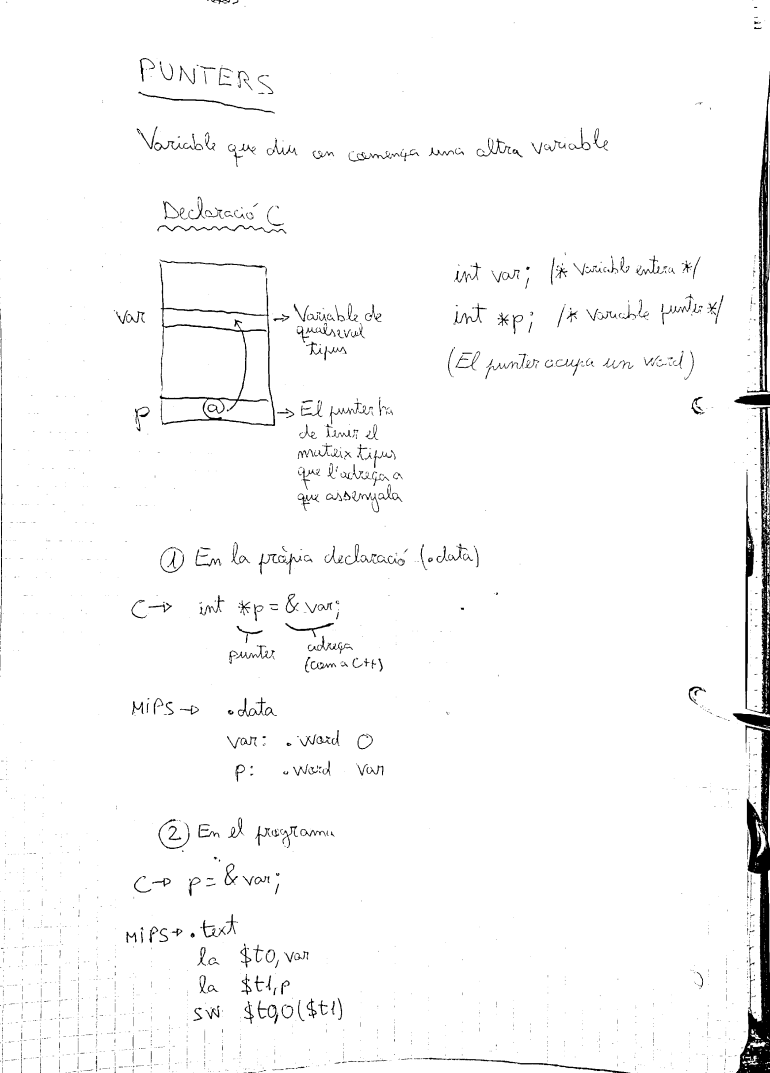 PUNTERS
Variable que diu on comença una altra variable
Declaració C
var
→ Variable de
qualsevol
tipus
p
@
→ El punter ha
de tenir el
mateix tipus
que l'adreça a
que assenyala
int var; /* Variable entera */
int *p; /* Variable punter */
(El punter ocupa un word)
① En la pròpia declaració (.data)
C→ int *p = & var;
punter
adreça
(com a C++)
MiPS→ .data
var: .word 0
p: .word var
② En el programa
C→ p = & var;
MiPS→ .text
la $t0, var
la $t1, p
sw $t0,0($t1)